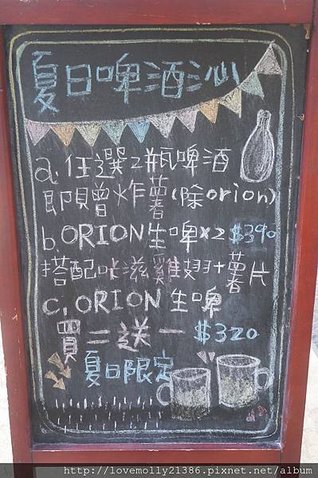 夏日啤酒沁
a.任選2瓶啤酒
即贈炸薯(除orion)
b.ORION生啤x2 $390
搭配吡滋雞翅+薯片
C.ORION生啤
買二送一 $320
夏日限定
http://lovemolly21386.pixnet.net/album